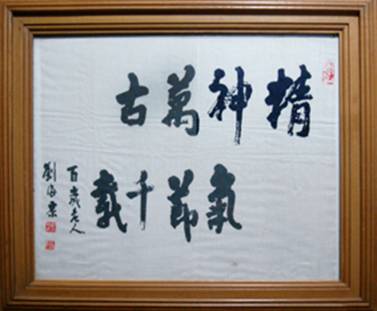 精神萬古
氣節千載
百歲老人
劉海粟